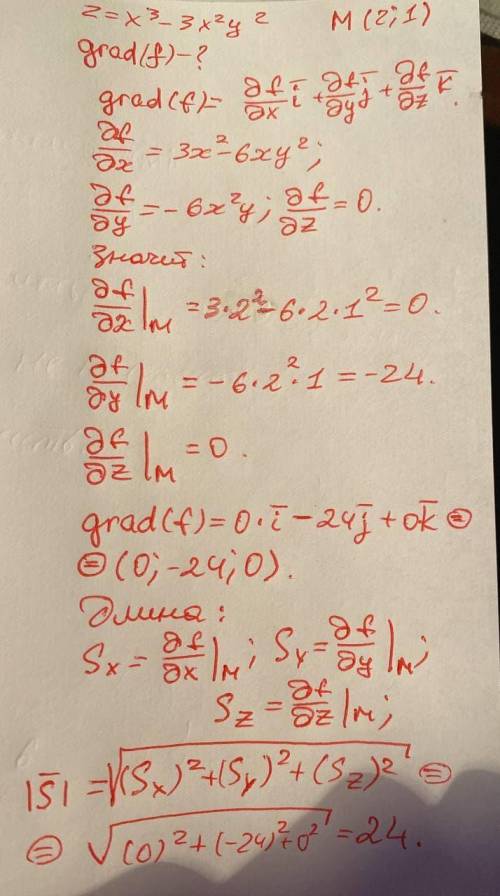 z = x³ - 3x²y² M(2;1)
grad(f) - ?
grad(f) = ∂f/∂x i̅ + ∂f/∂y j̅ + ∂f/∂z k̅.
∂f/∂x = 3x² - 6xy²;
∂f/∂y = -6x²y; ∂f/∂z = 0.
Значит:
∂f/∂x|M = 3·2² - 6·2·1² = 0.
∂f/∂y|M = -6·2²·1 = -24.
∂f/∂z|M = 0.
grad(f) = 0·i̅ - 24j̅ + 0k̅ ⊜
⊜ (0; -24; 0).
Длина:
Sx = ∂f/∂x|M; Sy = ∂f/∂y|M;
Sz = ∂f/∂z|M;
|S̅| = √((Sx)² + (Sy)² + (Sz)²) ⊜
⊜ √((0)² + (-24)² + 0²) = 24.